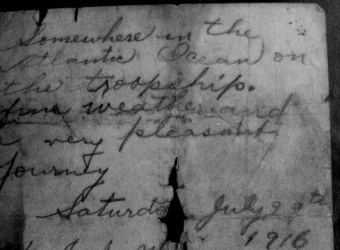 Somewhere in the
Atlantic Ocean on
the troopship.
fine weather and
a very pleasant
journey
Saturday July 29th
1916